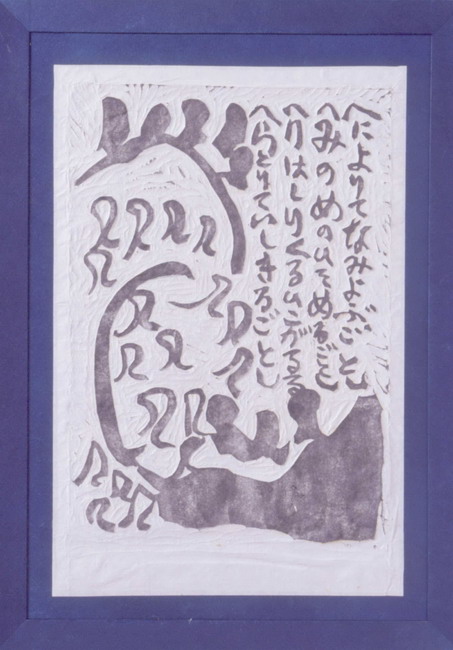 へによりてなみよぶごとし
へみのめのひそめるごとし
へりはしりくるひこがるる
へらとりていしきるごとし